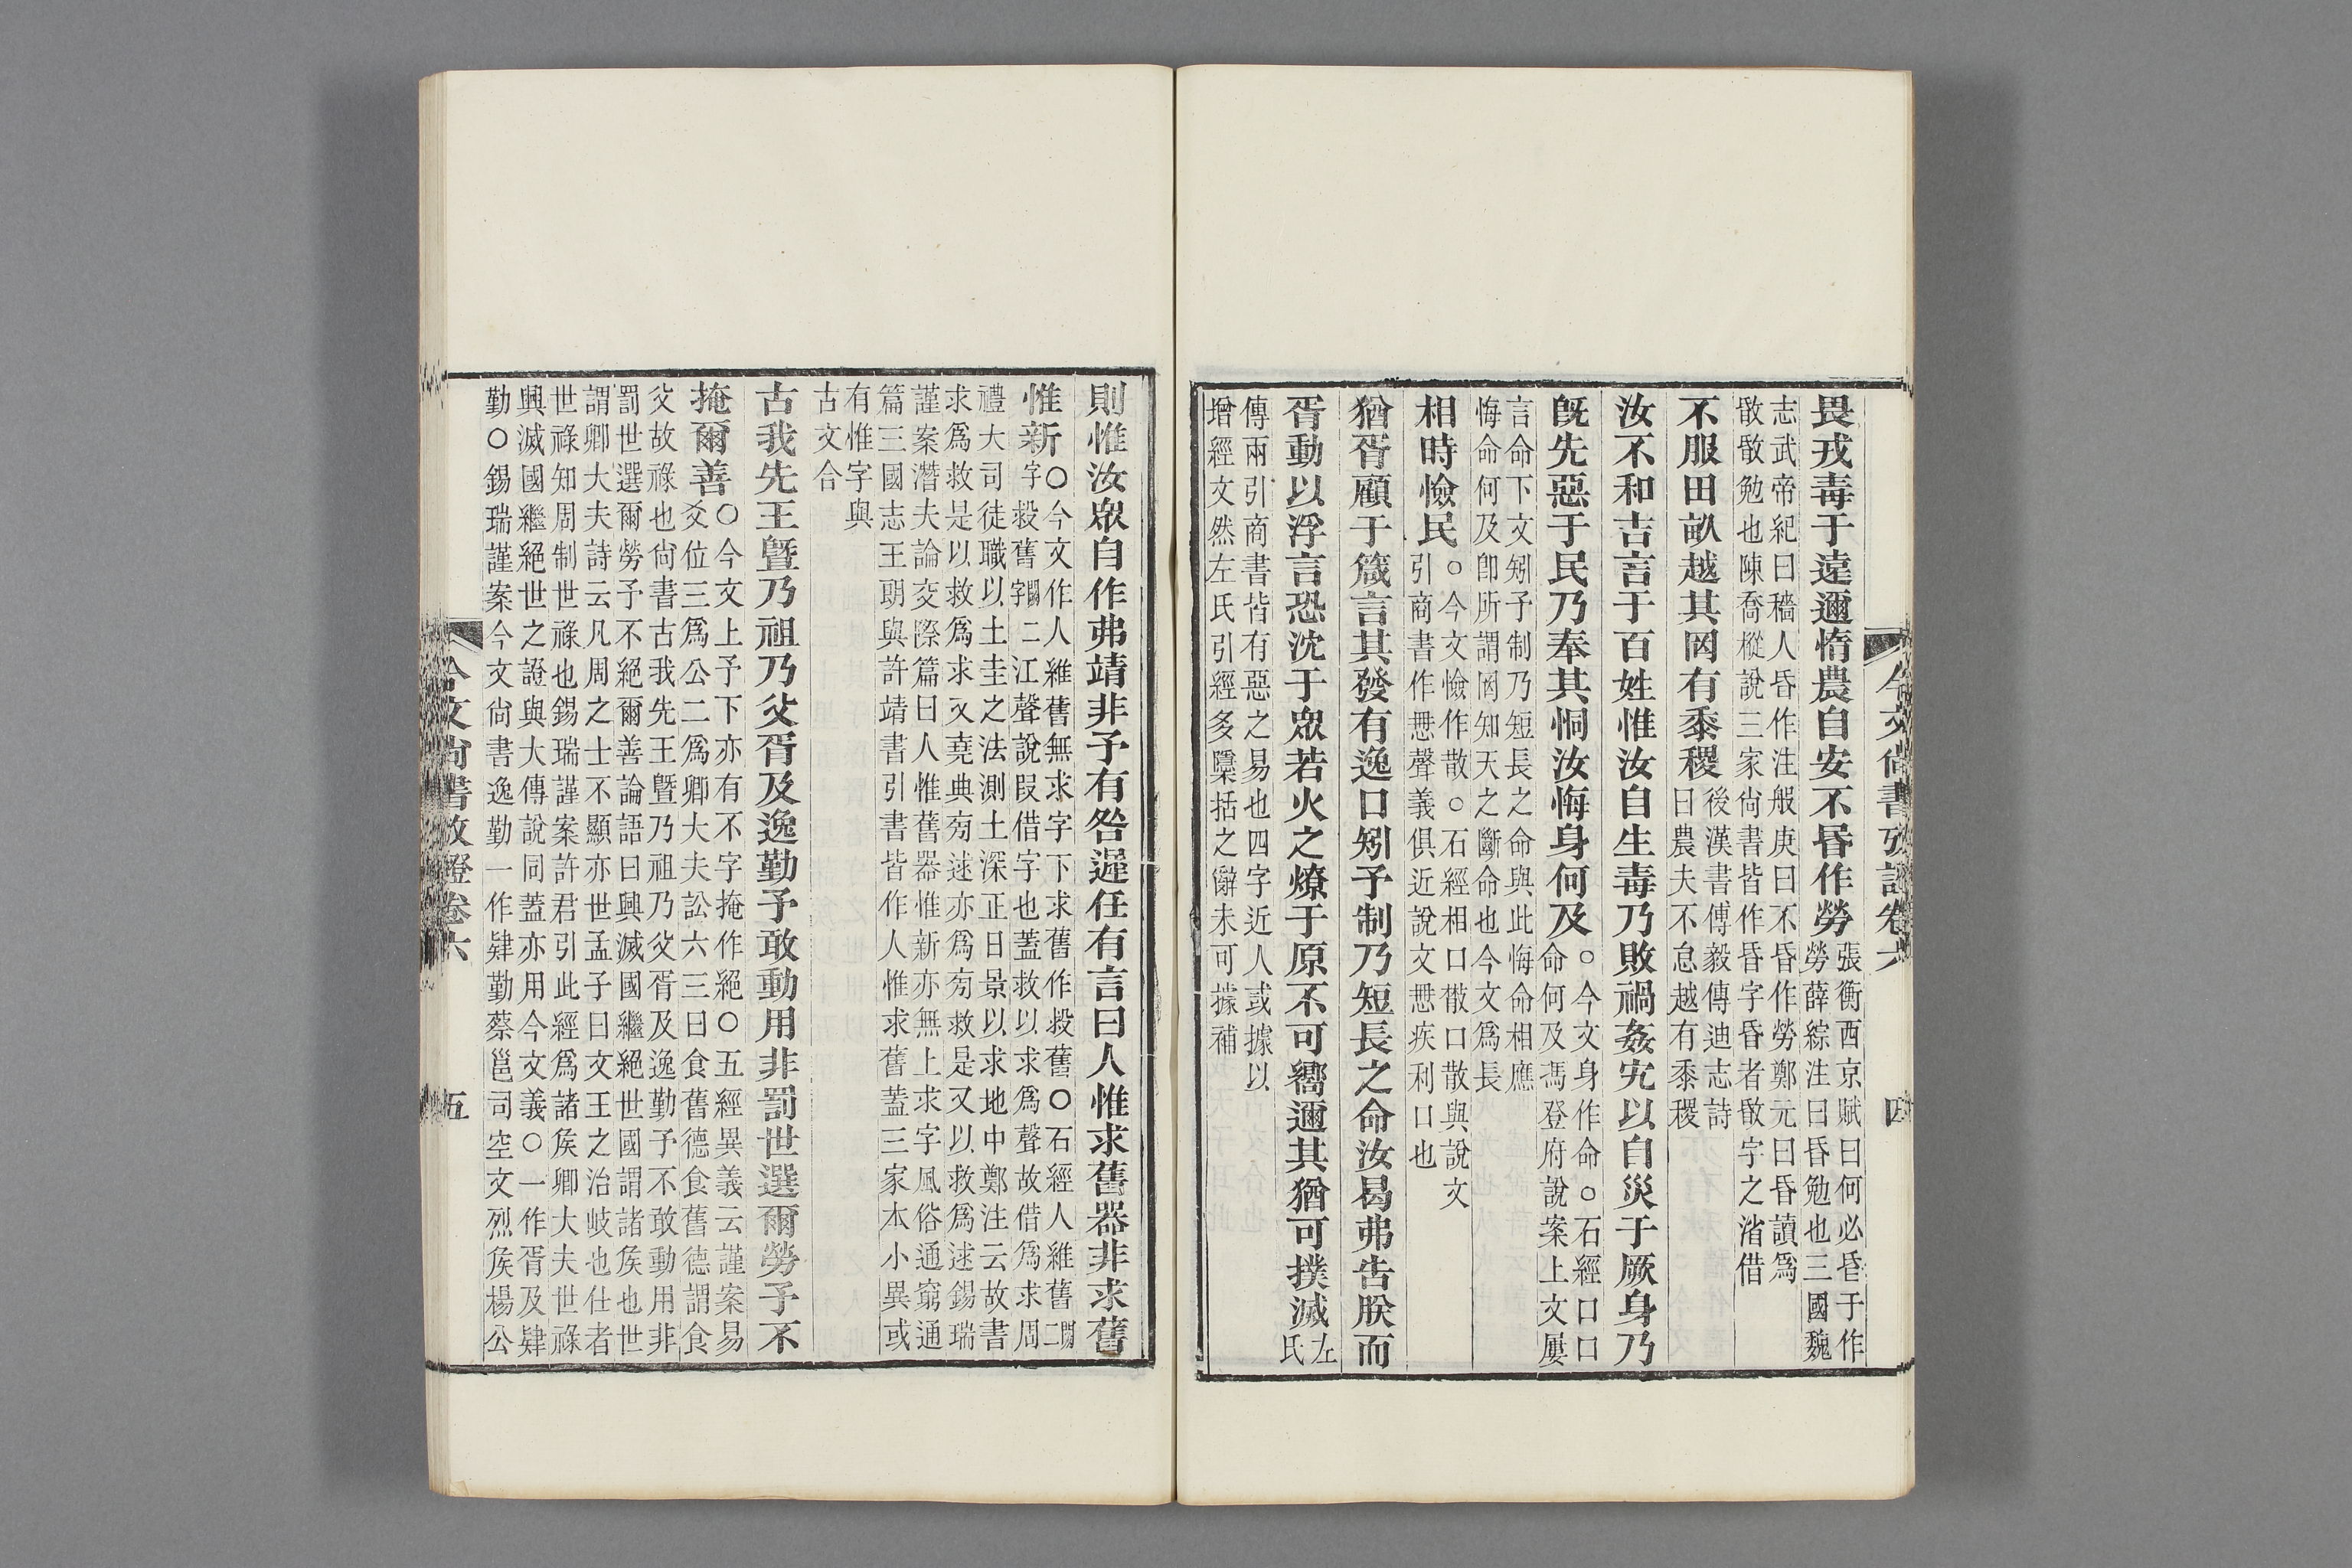 今文尚書攷證卷六
四
畏戎毒于遠邇惰農自安不昬作勞
張衡西京賦曰何必昬于作
勞薛綜注曰昏勉也三國魏
志武帝紀曰穡人昏作注般庚曰不昏作勞鄭元曰昏讀爲
敯敯勉也陳喬樅說三家尚書皆作昏字昏者敯字之渻借
不服田畝越其罔有黍稷
後漢書傅毅傳迪志詩
曰農夫不怠越有黍稷
汝不和吉言于百姓惟汝自生毒乃敗禍姦宄以自災于厥身乃
既先惡于民乃奉其恫汝悔身何及
○今文身作命○石經口口
命何及馮登府說案上文屢
言命下文矧予制乃短長之命與此悔命相應
悔命何及卽所謂罔知天之斷命也今文爲長
相時憸民
○今文憸作散○石經相口散口散與說文
引商書作聲義俱近說文疾利口也
猶胥顧于箴言其發有逸口矧予制乃短長之命汝曷弗告朕而
胥動以浮言恐沈于眾若火之燎于原不可嚮邇其猶可撲滅
左
氏
傳兩引商書皆有惡之易也四字近人或據以
增經文然左氏引經多檃括之辭未可據補
則惟汝眾自作弗靖非予有咎遲任有言曰人惟求舊器非求舊
惟新
○今文作人維舊無求字下求舊作救舊○石經人維舊闕二
字救舊闕二字江聲說叚借字也蓋救以求爲聲故借爲求周
禮大司徒職以土圭之法測土深正日景以求地中鄭注云故書
求爲救是以救爲求又堯典㫄逑亦爲㫄救是又以救爲逑錫瑞
謹案潛夫論交際篇曰人惟舊器惟新亦無上求字風俗通窮通
篇三國志王朗與許靖書引書皆作人惟求舊蓋三家本小異或
有惟字與
古文合
古我先王暨乃祖乃父胥及逸勤予敢動用非罰世選爾勞予不
掩爾善
○今文上予下亦有不字掩作絕○五經異義云謹案易
爻位三爲公二爲卿大夫訟六三曰食舊德食舊德謂食
父故祿也尚書古我先王暨乃祖乃父胥及逸勤予不敢動用非
罰世選爾勞予不絕爾善論語曰興滅國繼絕世國謂諸矦也世
謂卿大夫詩云凡周之士不顯亦世孟子曰文王之治岐也仕者
世祿知周制世祿也錫瑞謹案許君引此經爲諸矦卿大夫世祿
興滅國繼絕世之證與大傳說同蓋亦用今文義○一作胥及肄
勤○錫瑞謹案今文尚書逸勤一作肄勤蔡邕司空文烈矦楊公
今文尚書攷證卷六
五